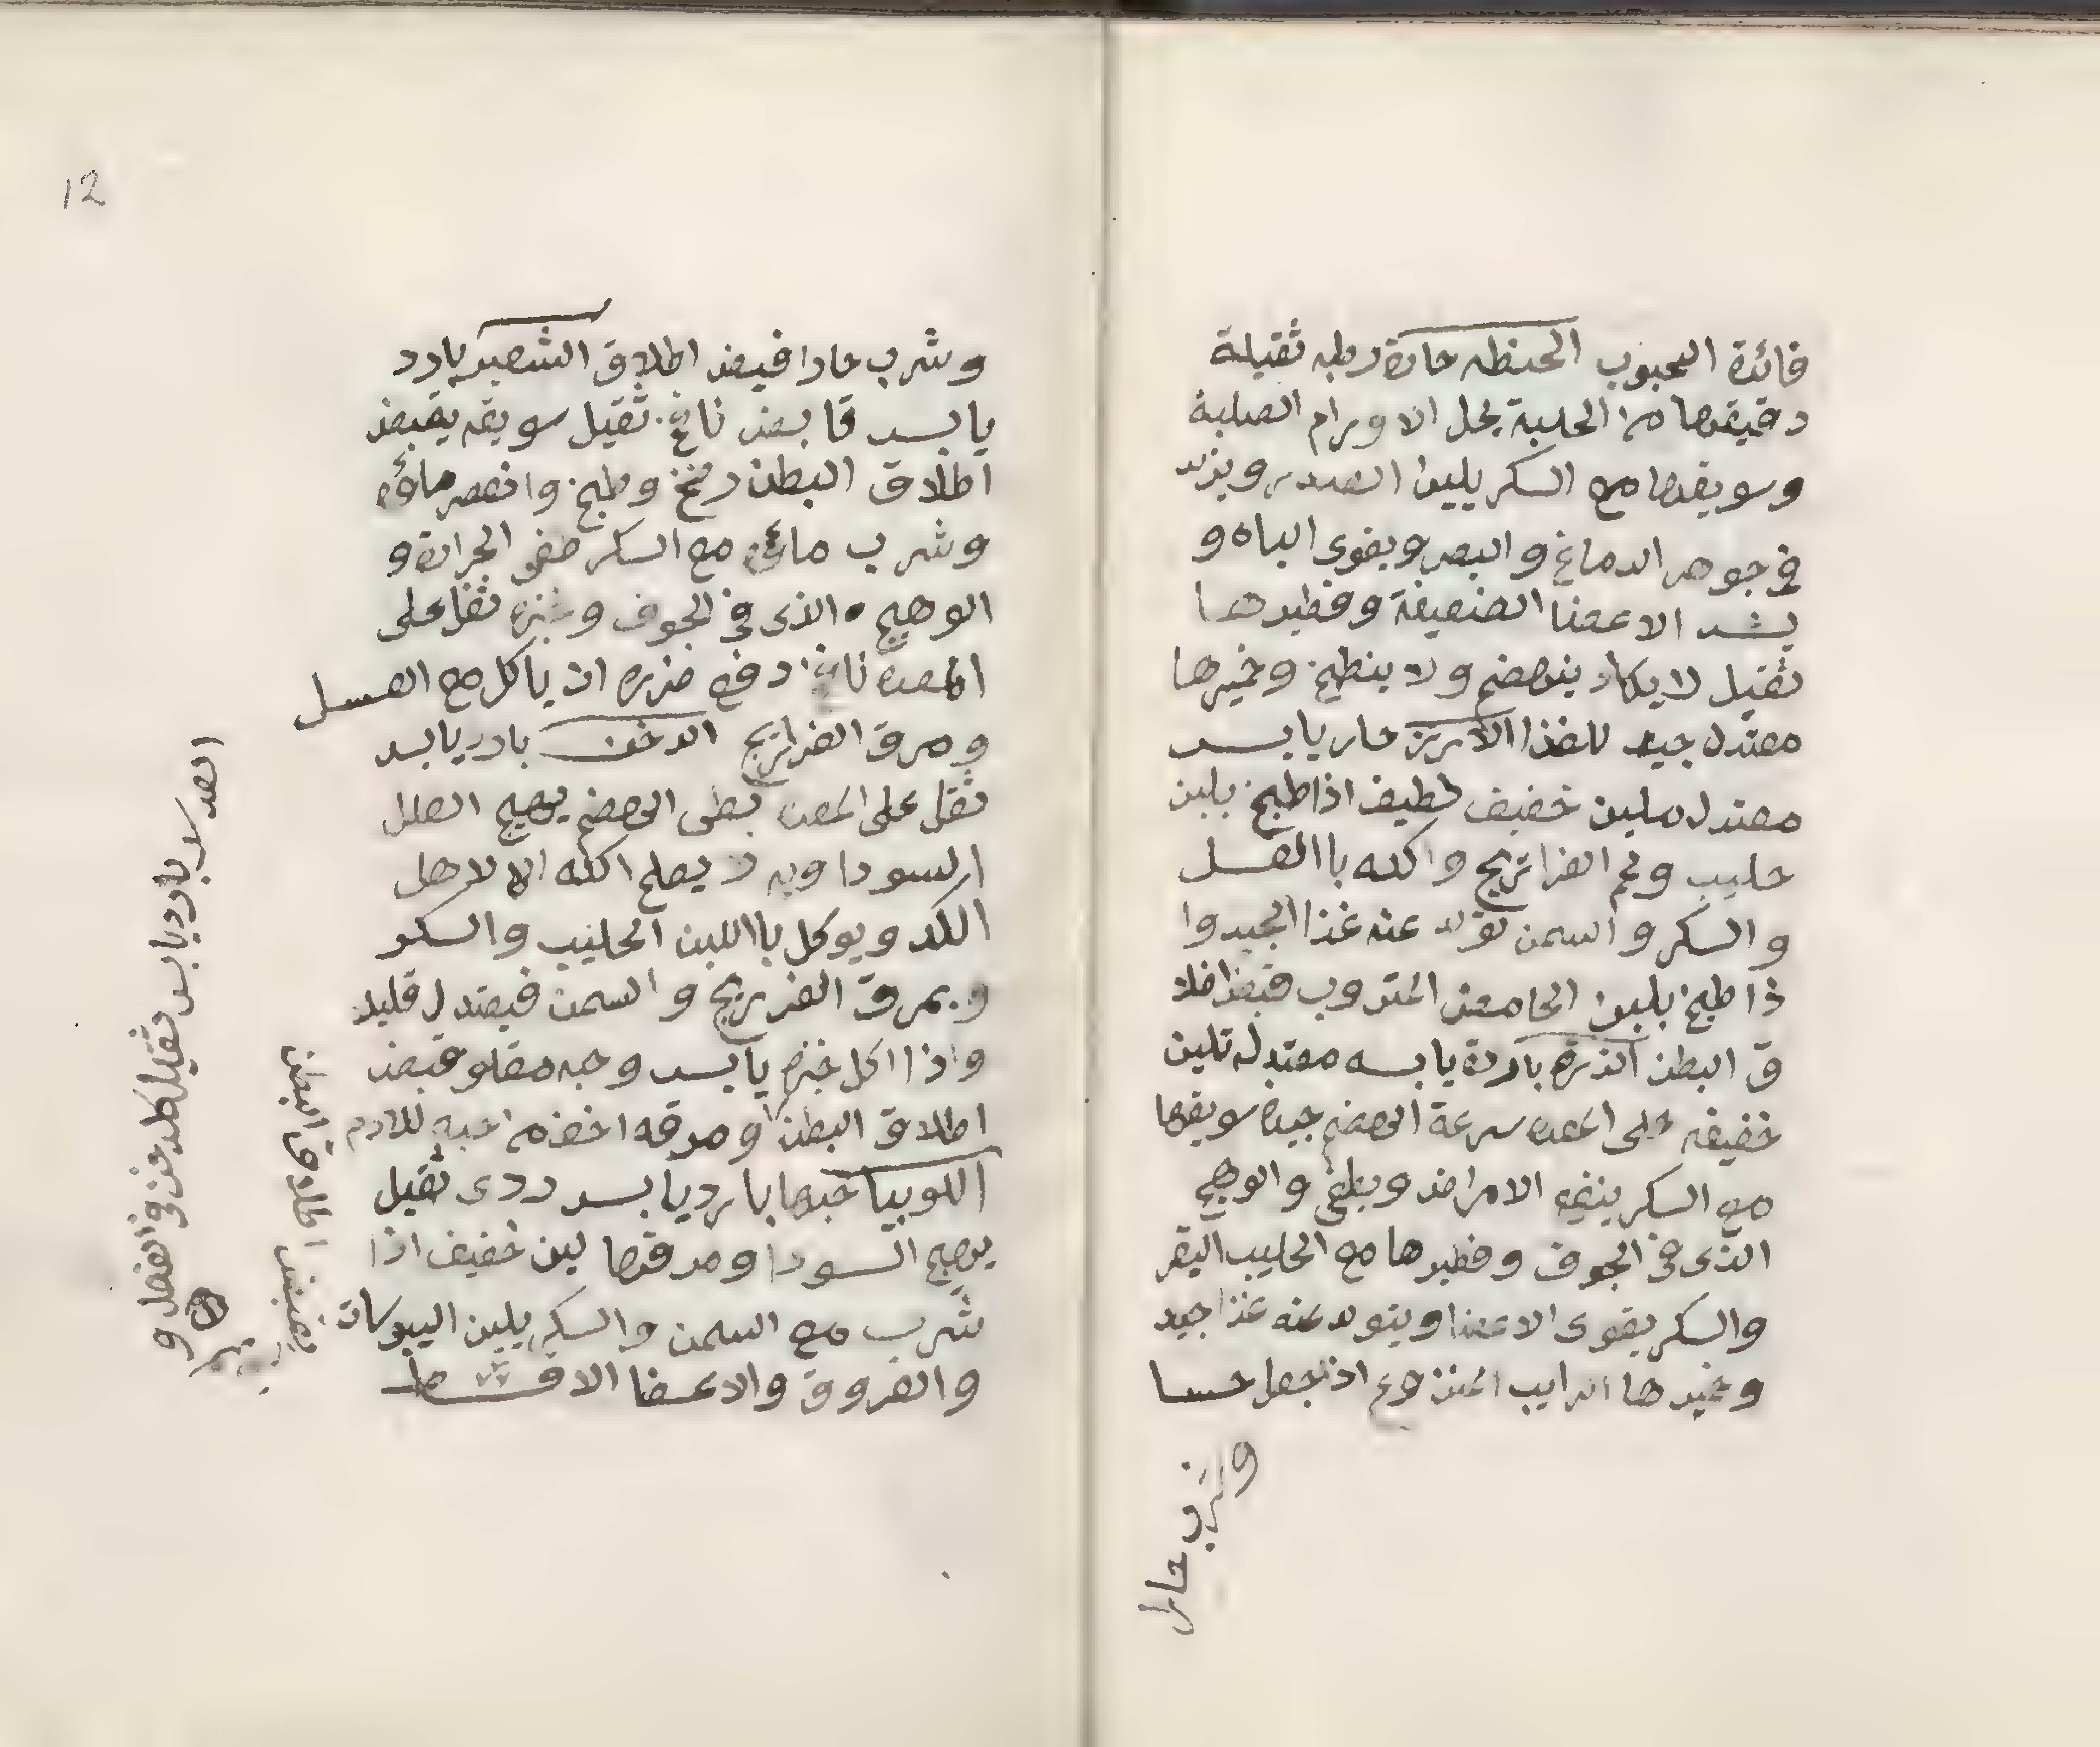 فائدة الحبوب الحنظه حارة رطبه ثقيلة
دقيقها مع الحلبة يحل الاورام الصلبة
وسويقها مع السكر يلين الصدر ويزيد
في جوهر الدماغ والبصر ويقوى الباه و
يشد الاعضا الضعيفة وفطيرها
ثقيل لا يكاد ينهضم ولا ينطبخ وخميرها
معتدل جيد للغذا الأرز حار يابس
معتدل ملين خفيف لطيف اذا طبخ بلبن
حليب ولحم الفراتريج واكله باالعسل
والسكر والسمن تولد عنه غذا الجيد وا
ذا طبخ بلبن الحامض المتروب قبض اطلا
ق البطن الذرة باردة يابسه معتدله تلين
خفيفه على المعده سرعة الهضم جيدة سويقها
مع السكر ينفع الامراض ويطفى والوهج
الذى في الجوف وفطيرها مع الحليب البقر
والسكر يقوى الاعضا ويتولد عنه غذا جيد
وخميرها الرايب المنزوع اذا جعل حسا
وشرب حارا
12
وشرب حارا قبض اطلاق الشعير بارد
يابس قابض نافخ ثقيل سويقه يقبض
اطلاق البطن رضخ وطبخ وانعصر ماؤه
وشرب مائه مع السكر طفى الحرارة و
الوهج الذى في الجوف وخبزه ثقل على
المعده نافخ دفع ضرره ان ياكل مع العسل
ومرق الفراتريج الدخن بارد يابس
ثقل على المعده بطى الهضم يهيج العلل
السوداويه لا يصلح اكله الا لاهل
الكد ويوكل باللبن الحليب والسكر
وبمرق الفريريج والسمن فيعتدل قليلا
واذا اكل خبزه يابس وحبه مقلو قبض
اطلاق البطن ومرقه اخف من حبه للادم
اللوبيا حبها بارد يابس ردى ثقيل
يهيج السودا ومرقها لين خفيف اذا
شرب مع السمن والسكر يلين اليبوسات
والعروق والاعضا الا قسط
العدس بارد يابس ثقيل كله عن في الفعل و
يقبض اطلاق البطن